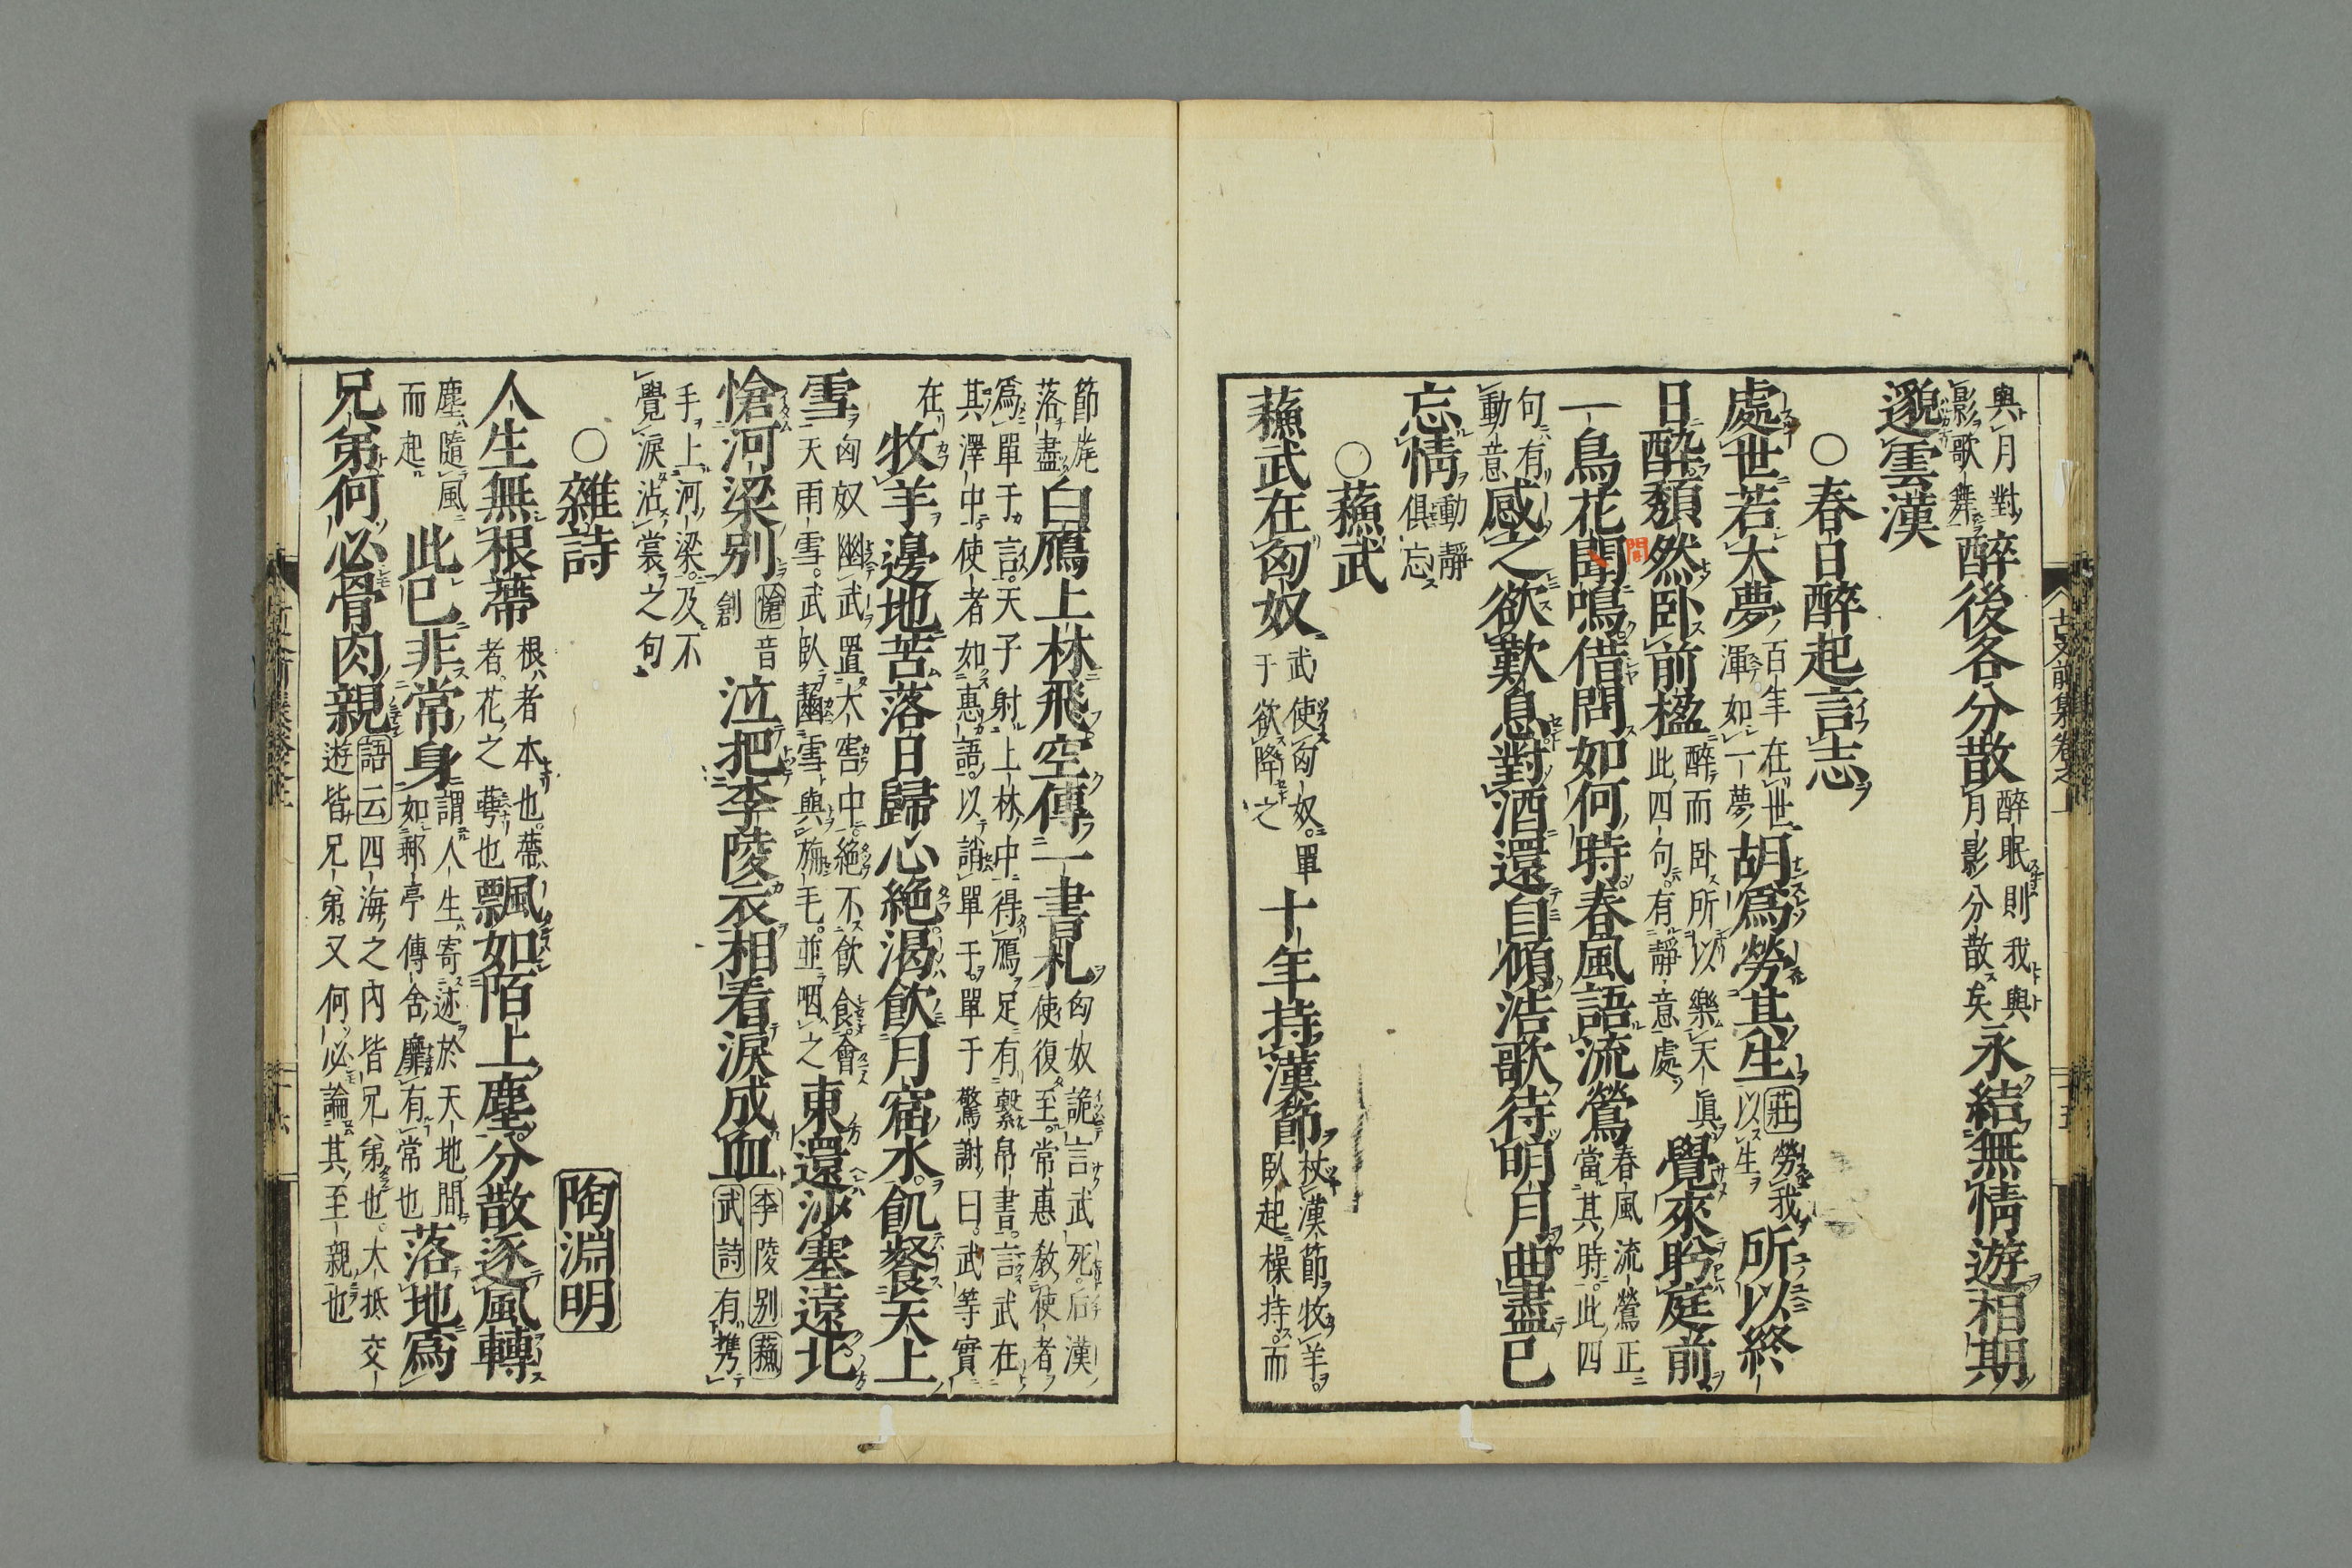 與月對影歌舞醉後各分散醉眠則我與月影分散矣永結無情遊相期
邈雲漢
○春日醉起言志
處世若大夢百年在世渾如一夢胡爲勞其生莊勞我以生所以終
日醉頹然卧前楹醉而卧所以樂天眞此四句有靜意處覺來眄庭前
一鳥花間鳴借問如何時春風語流鶯春風流鶯正當其時此四
句有動意感之欲歎息對酒還自傾浩歌待明月曲盡已
忘情動靜俱忘
○蘓武
蘓武在匈奴武使匈奴單于欲降之十年持漢節杖漢節牧羊臥起操持而
節旄落盡白鴈上林飛空傳一書札匈奴詭言武死后漢使復至常惠敎使者
爲單于言天子射上林中得鴈足有繫帛書言武在
其澤中使者如惠語以誚單于單于驚謝曰武等實
在牧羊邊地苦落日歸心絶渴飮月窟水飢餐天上
雪匈奴幽武置大窖中絶不飮食會天雨雪武臥齧雪與旃毛並咽之東還沙塞遠北
愴河梁別愴音創泣把李陵衣相看淚成血李陵別蘓武詩有携
手上河梁及不覺淚沾裳之句
○雜詩 陶淵明
人生無根蔕根者本也蔕者花之蕚也飄如陌上塵分散逐風轉
塵隨風而起此已非常身謂人生寄迹於天地間如郵亭傳舍靡有常也落地爲
兄弟何必骨肉親語云四海之內皆兄弟也大抵交遊皆兄弟又何必論其至親也
古文前集卷之上
十五